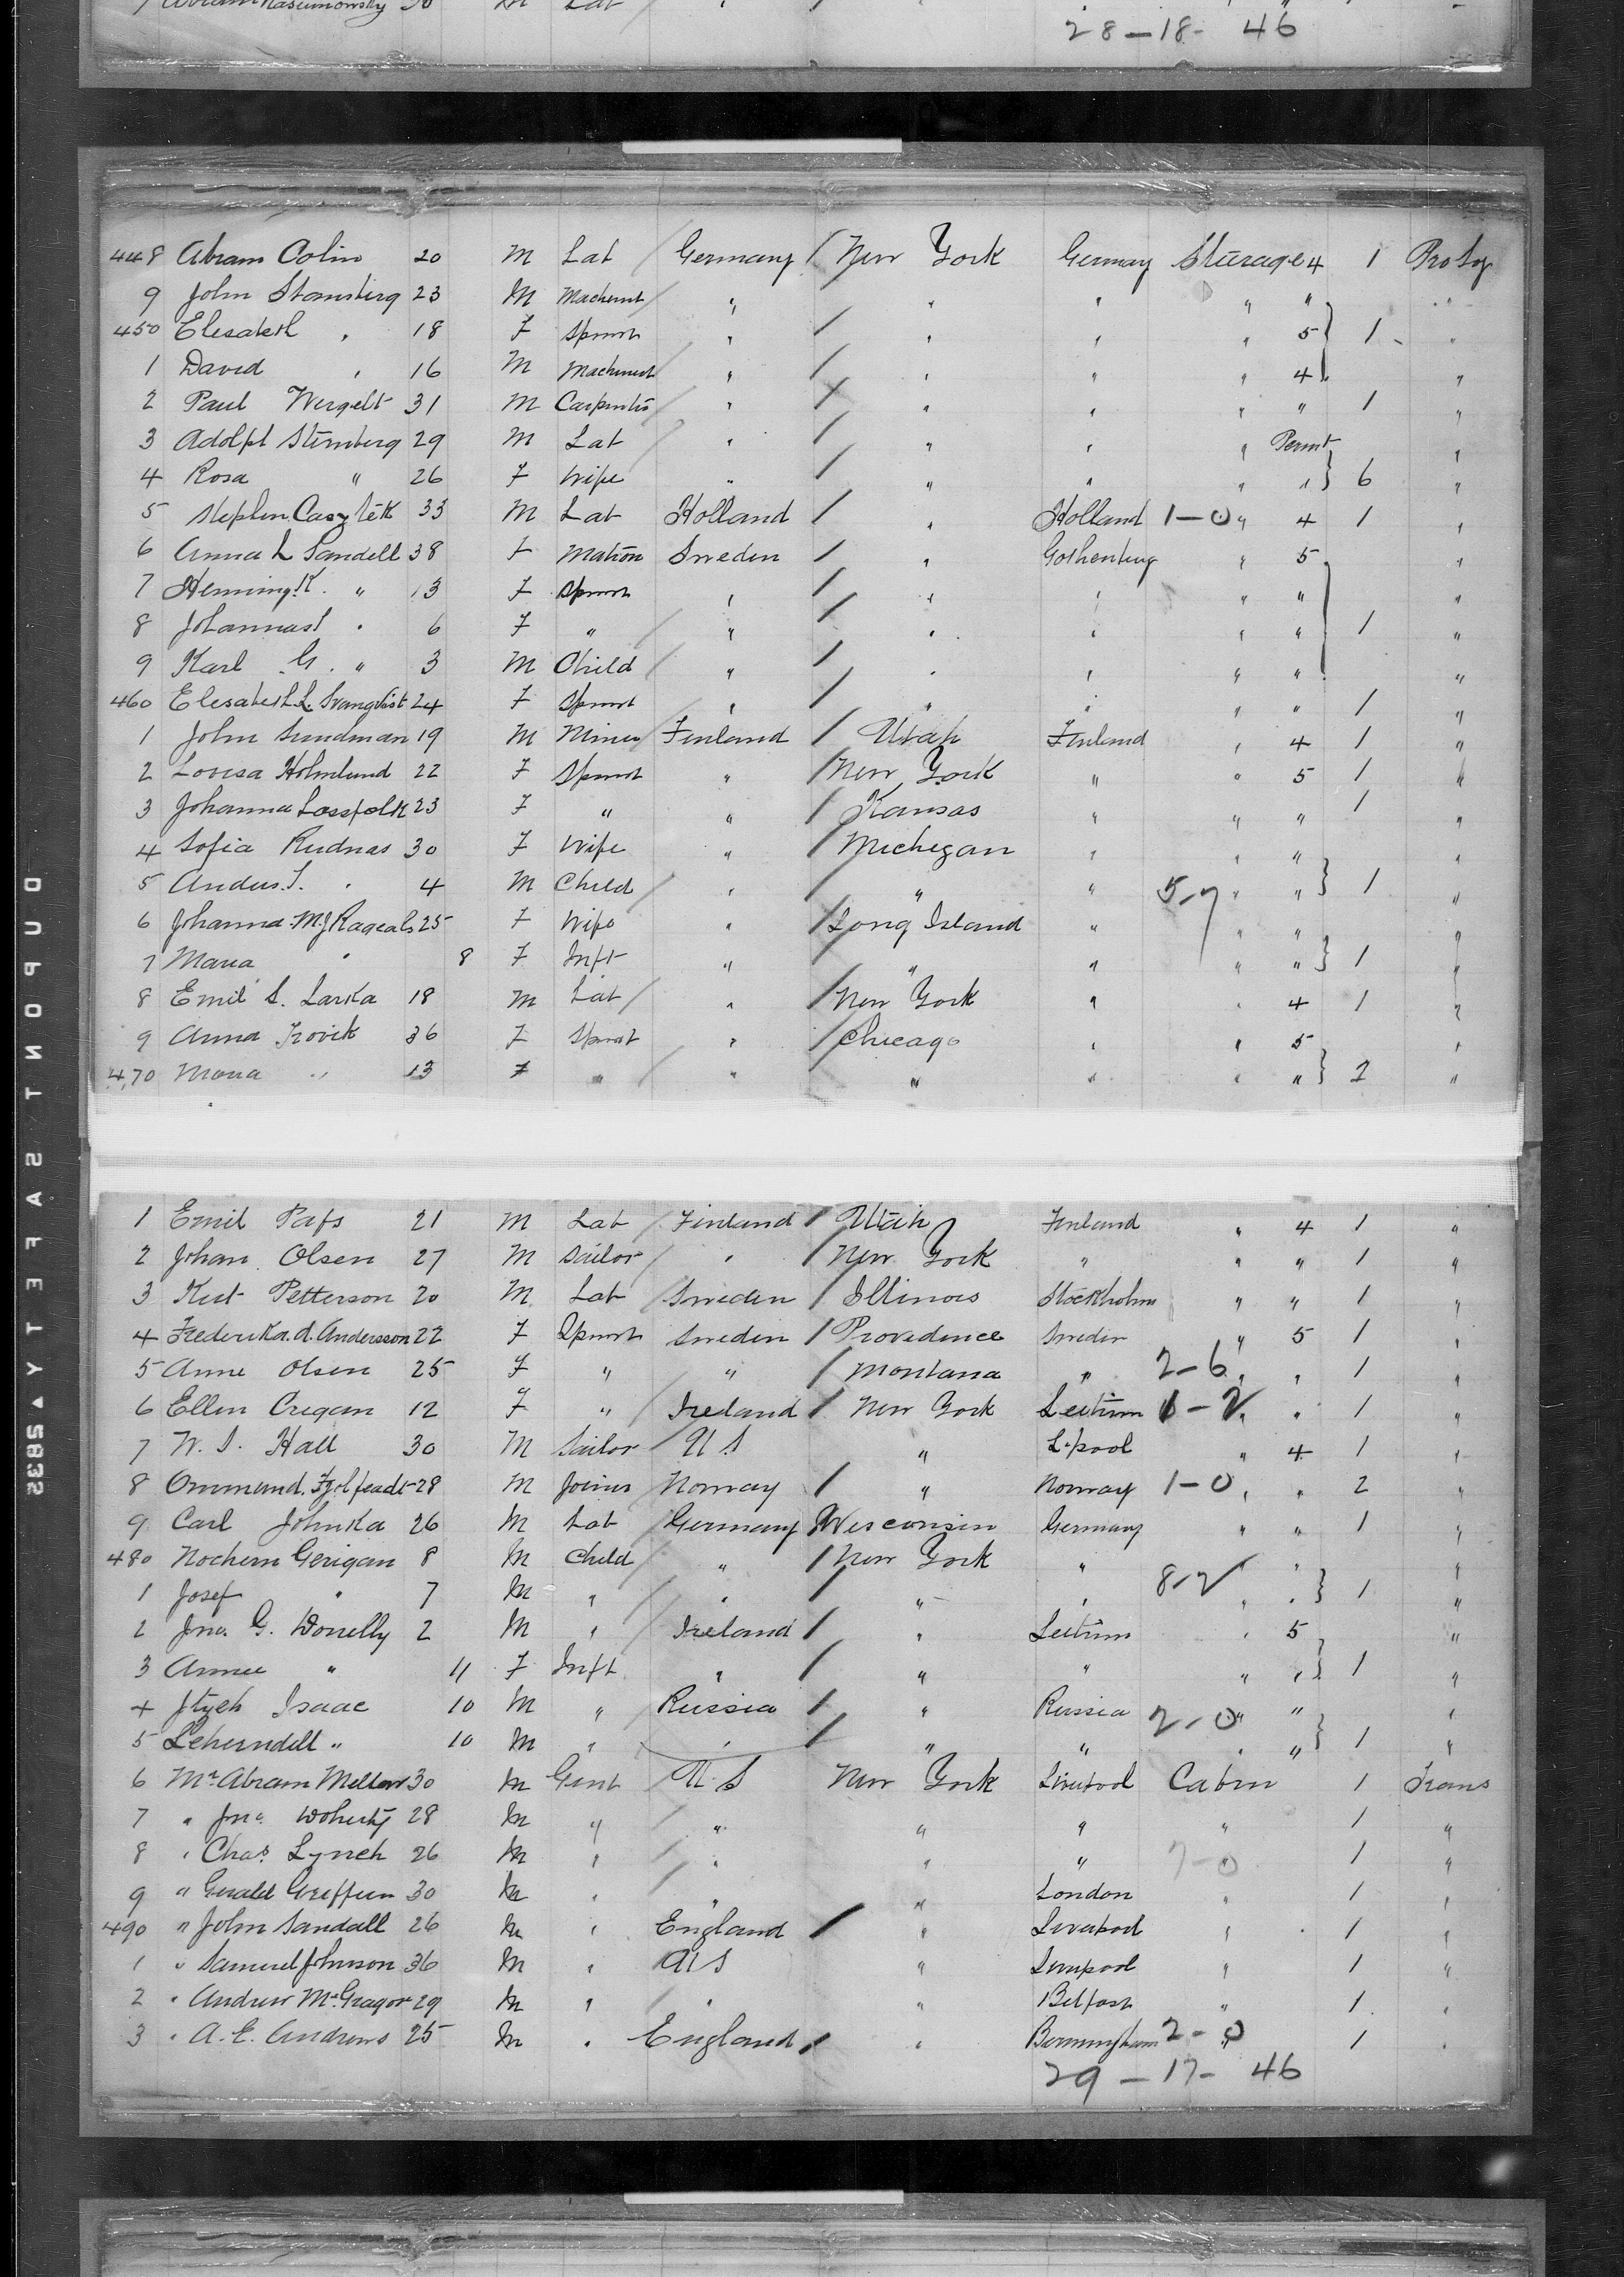 28-18- 46
448 Abram Colin 20 M Lab / Germany / New York Germany Steerage 4 1 Pro Soj
9 John Stamsberg 23 M Machinist / " " " " " "
450 Elesabeth " 18 F Spinst " / " " " 5 } 1 "
1 David " 16 M Machinist / " / " " " 4 "
2 Paul Wergelt 31 M Carpenter " / " " " " 1 "
3 Adolph Sternberg 29 M Lab / " / " " " Permt "
4 Rosa " 26 F Wife " / " " " " } 6 "
5 Stephen M Lab Holland / " Holland 1-0 " 4 1 "
6 Anna L Sandell 38 F Matron Sweden / " Gothenburg " 5 "
7 Henning K. " 13 F Spinst " / " " " " "
8 Johannas " 6 F " / " / " " " " } 1 "
9 Karl G. " 3 M Child / " / " " " " "
460 Elesabeth L. Svangvist 24 F Spinst " / " " " " 1 "
1 John Sundman 19 M Miner Finland / Utah Finland " 4 1 "
2 Lovisa Holmlund 22 F Spinst " / New York " " 5 1 "
3 Johanna Lassfolk 23 F " " / Kansas " " " 1 "
4 Sofia Rudnas 30 F Wife " / Michegan " " " "
5 Andus. J. " 4 M Child / " / " " 5-7 " " } 1 "
6 Johanna M. J 25 F Wife " / Long Island " " " "
7 Maria " 8 F Inft " / " " " " } 1 "
8 Emil S. Larka 18 M Lab / " / New York " " 4 1 "
9 Anna 36 F Spinst " / Chicago " " 5 "
470 Maria " 13 F " / " " " " " } 2 "
1 Emil Pafs 21 M Lab / Finland / Utah Finland " 4 1 "
2 Johan Olsen 27 M Sailor / " / New York " " " 1 "
3 Petterson 20 M Lab / Sweden / Illinois Stockholm " " 1 "
4 Frederika. A. Andersson 22 F Spinst Sweden / Providence Sweden " 5 1 "
5 Anne Olsen 25 F " " / Montana " 2-6 " " 1 "
6 Ellen Cregan 12 F " / Ireland / New York Leitrim 1-2 " " 1 "
7 W. S. Hall 30 M Sailor / U S " L.pool " 4 1 "
8 28 M Joiner Norway / " Norway 1-0 " " 2 "
9 Carl Johnka 26 M Lab / Germany / Wesconsin Germany " " 1 "
480 Nochem Gerigan 8 M Child / " / New York " " " "
1 Josef " 7 M " / " / " " 8-2 " " } 1 "
2 Jno. G. Donelly 2 M " / Ireland / " Leitrim " 5 "
3 Annie " 11 F Inft " / " " " " } 1 "
4 Isaac 10 M " / Russia / " Russia 2-0 " " "
5 " 10 M " " / " " " " } 1 "
6 Mr Abram Mellor 30 M Gent / U S New York Liverpool Cabin 1 Trans
7 " Jno. Doherty 28 M " / " " " " 1 "
8 " Chas. Lynch 26 M " / " " " 7-0 " 1 "
9 " Gerald Greffein 30 M " / " " London " 1 "
490 " John Sandall 26 M " England / " Liverpool " 1 "
1 " Samuel Johnson 36 M " U S " Liverpool " 1 "
2 " Andrew McGragor 29 M " / " " Belfast " 1 "
3 " A. E. Andrews 25 M " England / " Bermingham 2-0 " 1 "
29-17- 46
DUPONT SAFETY